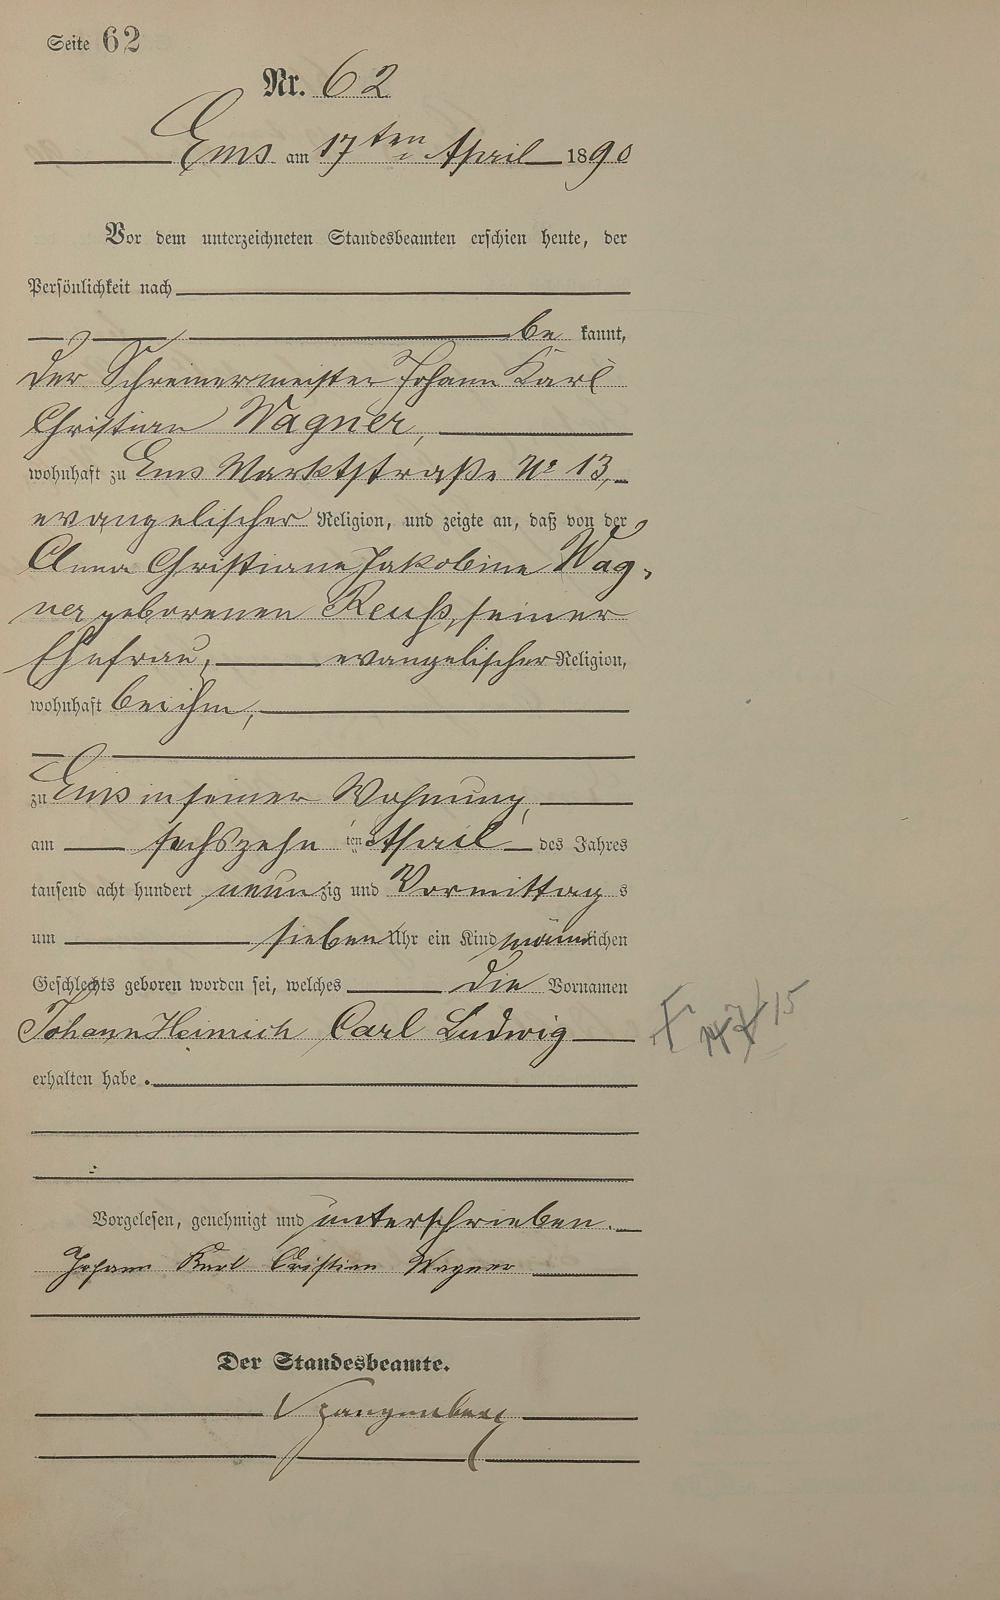 Seite 62
Nr. 62
Ems am 17ten April 1890
Vor dem unterzeichneten Standesbeamten erschien heute, der
Persönlichkeit nach
be kannt,
der Schreinermeister Johann Karl
Christian Wagner,
wohnhaft zu Ems Marktstraße No 13,
evangelischer Religion, und zeigte an, daß von der
Anna Christiane Jakobine Wag-
ner geborenen Reuß, seiner
Ehefrau, evangelischer Religion,
wohnhaft bei ihm,
zu Ems in seiner Wohnung,
am sechszehn ten April des Jahres
tausend acht hundert neun zig und Vormittag s
um sieben Uhr ein Kind männlichen
Geschlechts geboren worden sei, welches die Vornamen
Johann Heinrich Carl Ludwig
erhalten habe.
Vorgelesen, genehmigt und unterschrieben.
Johann Karl Cristian Wagner
Der Standesbeamte.
Spangenberg